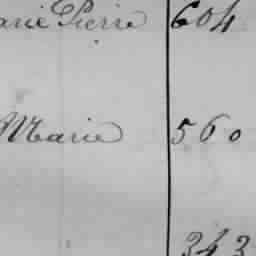 arie Pierre 604
Marie 560
343